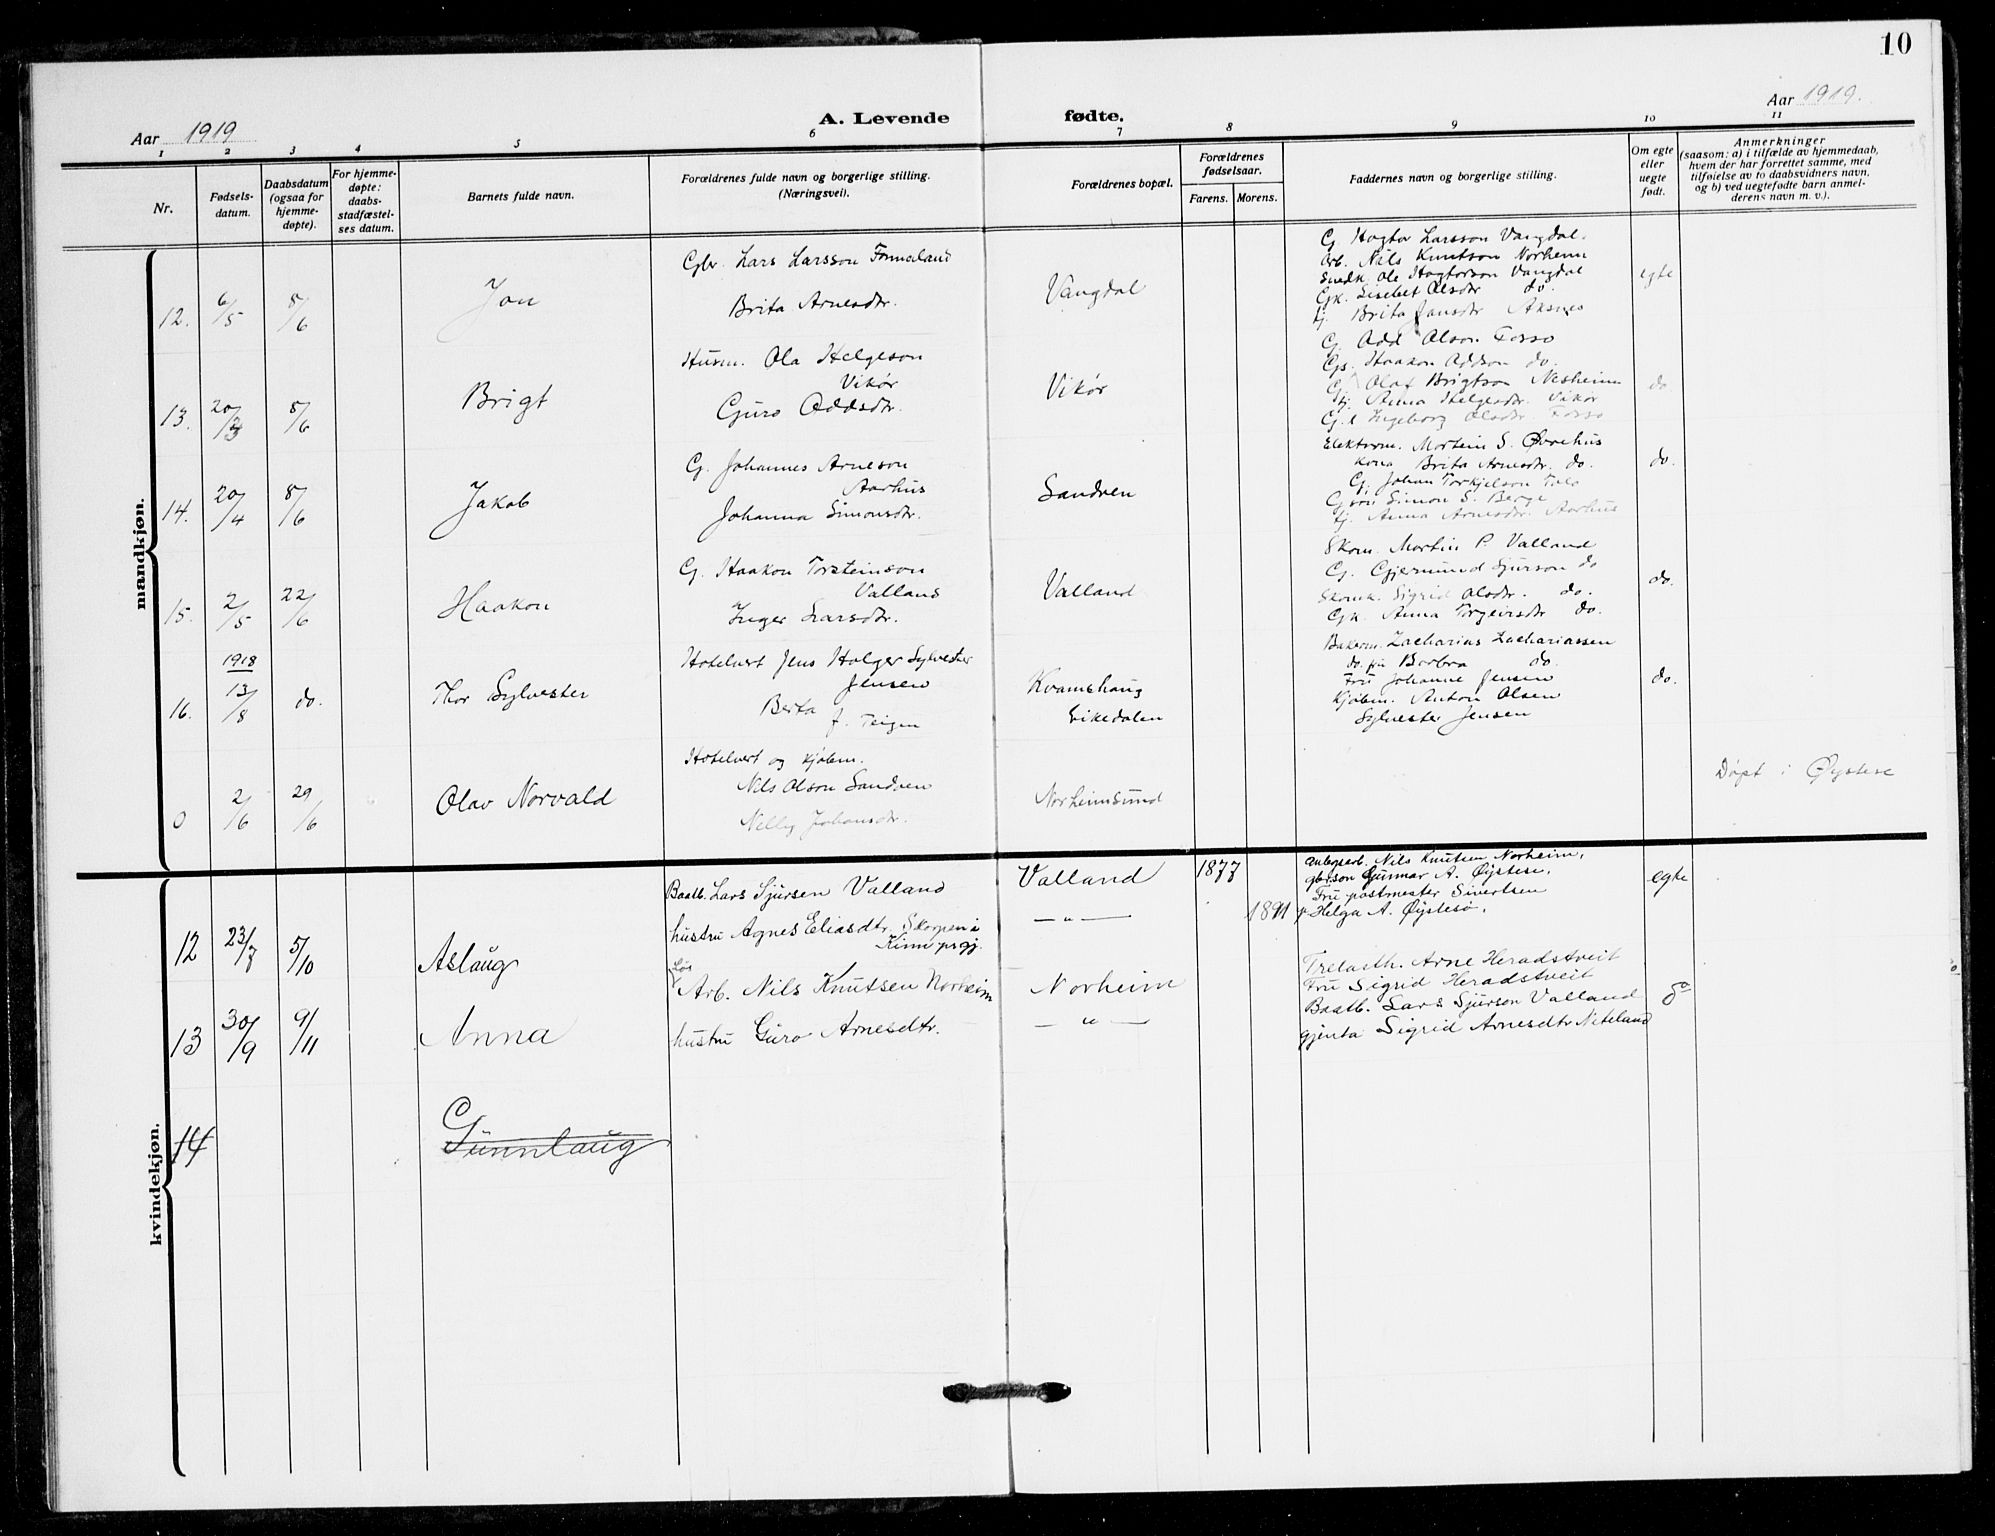 10
Aar 1919
A. Levende fødte.
Aar 1919.
1 2 3 4 5 6 7 8 9 10 11
Nr.
Fødsels-
datum.
Daabsdatum
(ogsaa for
hjemme-
døpte).
For hjemme-
døpte:
daabs-
stadfæstel-
ses datum.
Barnets fulde navn.
Forældrenes fulde navn og borgerlige stilling.
(Næringsvei).
Forældrenes bopæl.
Forældrenes
fødselsaar.
Farens. Morens.
Faddernes navn og borgerlige stilling.
Om egte
eller
uegte
født.
Anmerkninger
(saasom: a) i tilfælde av hjemmedaab,
hvem der har forrettet samme, med
tilføielse av to daabsvidners navn,
og b) ved uegtefødte barn anmel-
derens navn m. v.).
mandkjøn.
12. 6/5 8/6 Jon
Gbr. Lars Larsson
Brita Arnesdtr.
Vangdal
G. Hagtor Larsson Vangdal.
Arb. Nils Knutson Norheim
Snedk. Ole Hagtorson Vangdal
Gjk. Lisebet Olsdtr do.
tj. Brita Jonsdtr Aksnes
egte
13. 8/6 Brigt
Husm. Ola Helgeson
Vikør
Guro Oddsdtr.
Vikør
G. Odd Olson Fosso
Gs. Haakon Oddson do.
G. Olaf Brigtson Nesheim
tj. Anna Helgesdtr. Vikør
G.k Ingeborg Olsdtr. Fosso
do
14. 20/4 8/6 Jakob
G. Johannes Arneson
Aarhus
Johanna Simonsdtr.
Sandven
Elektrom. Mortein S. Øvrehus
Kona Brita Arnesdtr. do.
G. Johan Torkjelson Tolo
Simon S. Berge
tj. Anna Arnesdtr. Aarhus
do.
15. 2/5 22/6 Haakon
G. Haakon Torsteinson
Valland
Inger Larsdtr.
Valland
Skom. Martin P. Valland
G. Gjermund Sjurson do
Skomk. Sigrid Olsdtr. do.
Gjk. Anna Torgeirsdtr do.
do.
1918
16. 13/8 do. Thor Sylvester
Hotelvert Jens Holger Sylvester
Jensen
Berta f. Teigen
Kvamshaug
Eikedalen
Bakerm. Zacharias Zachariassen
do. fru Borbra do.
Fru Johanne Jensen
Kjøbm. Anton Olsen
Sylvester Jensen
do.
0 2/6 29/6 Olav Norvald
Hotelvert og Kjøbm.
Nils Olson Sandven
Nelly Johansdtr.
Norheimsund
Døpt i Øystese
kvindekjøn.
12 23/7 5/10 Aslaug
Baatb. Lars Sjursen Valland
hustru Agnes Eliasdtr. Skorpen i
Kinn prgj.
Valland
— " —
1877
1891
anlegsarb. Nils Knutsen Norheim,
gbrson Gunnar A. Øystese,
Fru postmester Sivertsen
p. Helga A. Øystesø.
egte
13 30/9 9/11 Anna
Løs
Arb. Nils Knutsen Norheim
hustru Guro Arnesdtr.
Norheim
— " —
Trelasth. Arne Heradstveit
Fru Sigrid Heradstveit
Baatb. Lars Sjurson Valland
gjenta Sigrid Arnesdtr Neteland
do
14 Gunnlaug